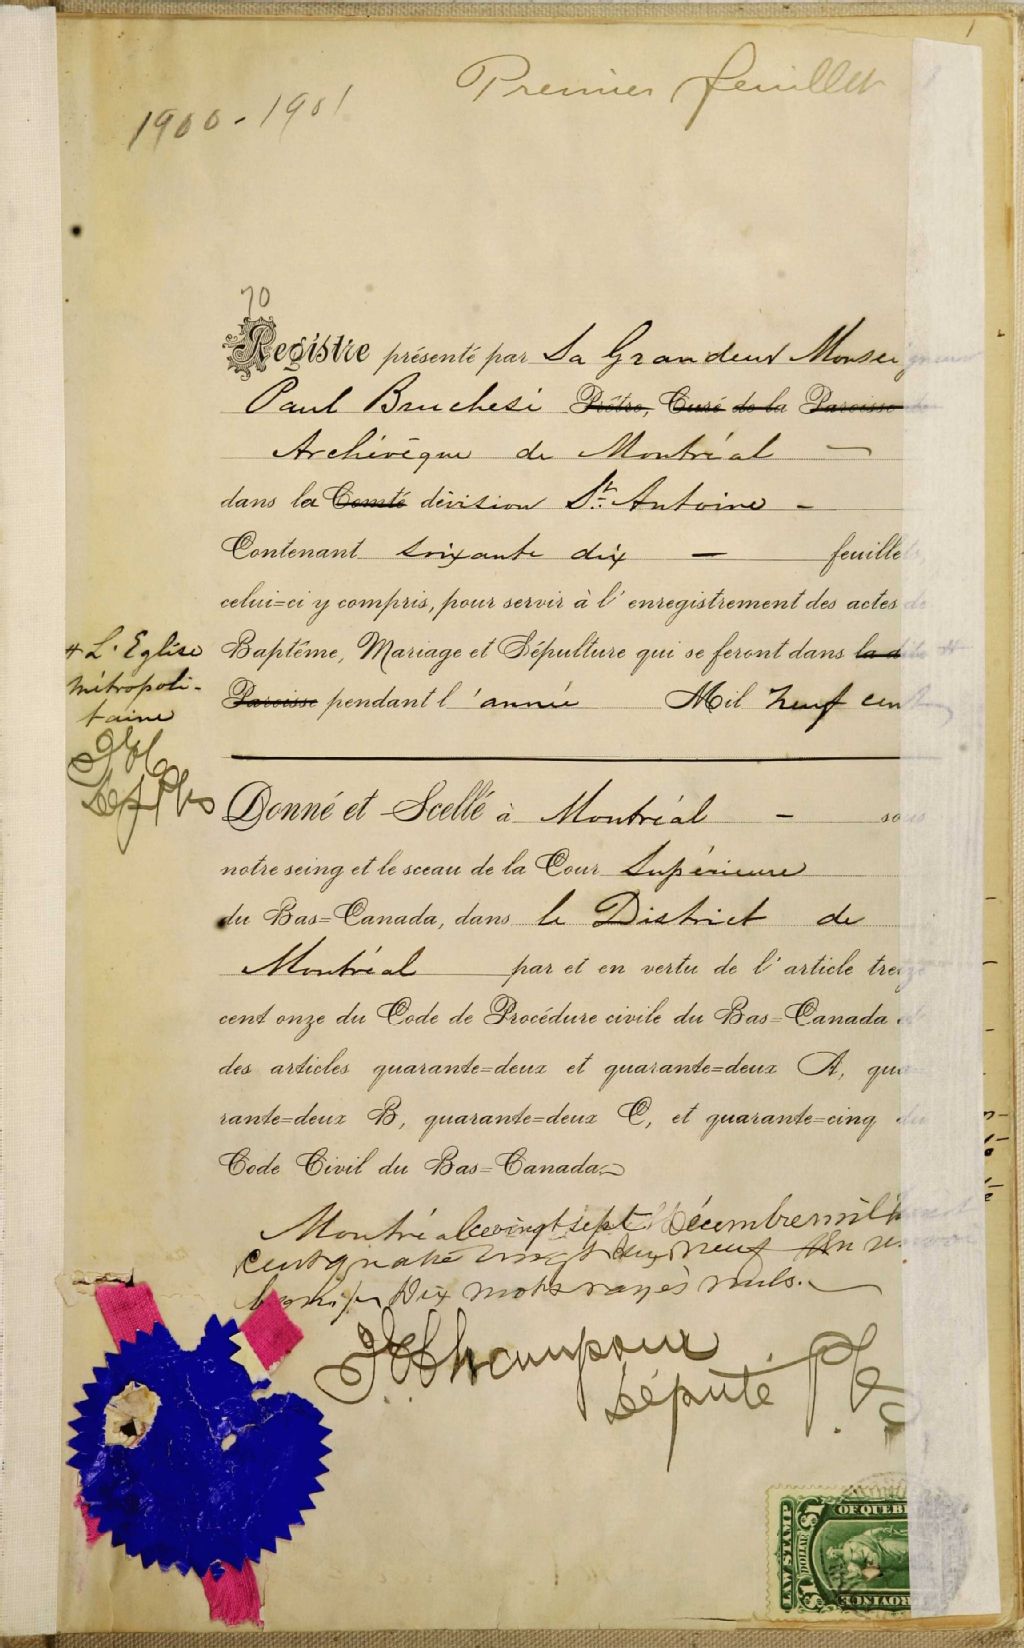 Premier feuillet
1900-1901
70
Registre présenté par Sa Grandeur Monseigneur
Paul Bruchesi Prêtre, Curé de la Paroisse de
Archévêque de Montréal —
dans la Comté division St. Antoine -
Contenant soixante dix — feuillets,
celui=ci y compris, pour servir à l'enregistrement des actes de
# L'Eglise
métropoli-
taine
Baptême, Mariage et Sépulture qui se feront dans la dite #
Paroisse pendant l'année Mil neuf cent
Donné et Scellé à Montréal - sous
notre seing et le sceau de la Cour Supérieure
du Bas=Canada, dans le District de
Montréal par et en vertu de l'article treize
cent onze du Code de Procédure civile du Bas=Canada et
des articles quarante=deux et quarante=deux A, qua=
rante=deux B, quarante=deux C, et quarante=cinq du
Code Civil du Bas=Canada.
Montréal ce vingt sept Décembre mil
cent quatre vingt dix neuf Un
Dix mots rayés nuls.
Député
LAW STAMP
$1 DOLLAR $1
OF QUEBEC
PROVINCE